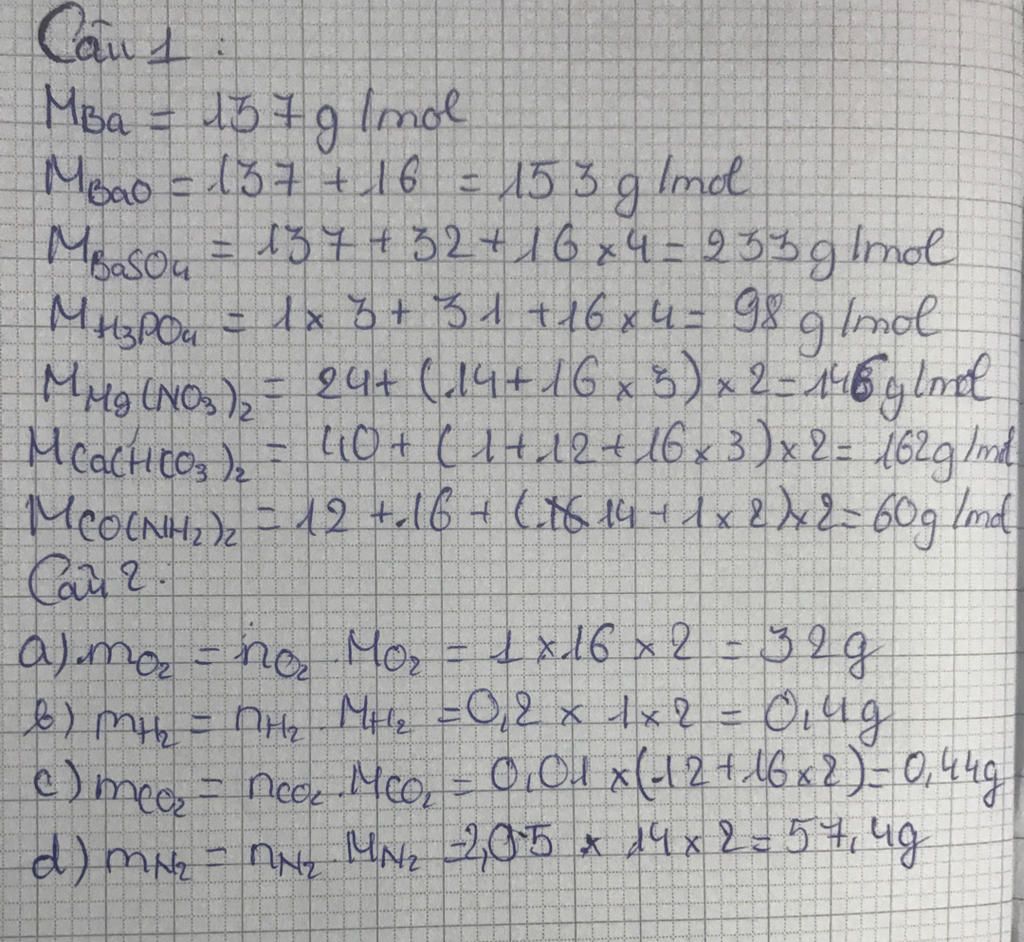 Câu 1 :
MBa = 137 g/mol
MBaO = 137 + 16 = 153 g/mol
MBaSO4 = 137 + 32 + 16 × 4 = 233 g/mol
MH3PO4 = 1 × 3 + 31 + 16 × 4 = 98 g/mol
MMg(NO3)2 = 24 + (14 + 16 × 3) × 2 = 146 g/mol
MCa(HCO3)2 = 40 + (1 + 12 + 16 × 3) × 2 = 162 g/mol
MCO(NH2)2 = 12 + 16 + (14 + 1 × 2) × 2 = 60 g/mol
Câu 2 :
a) mO2 = nO2 . MO2 = 1 × 16 × 2 = 32 g
b) mH2 = nH2 . MH2 = 0,2 × 1 × 2 = 0,4 g
c) mCO2 = nCO2 . MCO2 = 0,01 × (12 + 16 × 2) = 0,44 g
d) mN2 = nN2 . MN2 = 2,05 × 14 × 2 = 57,4 g